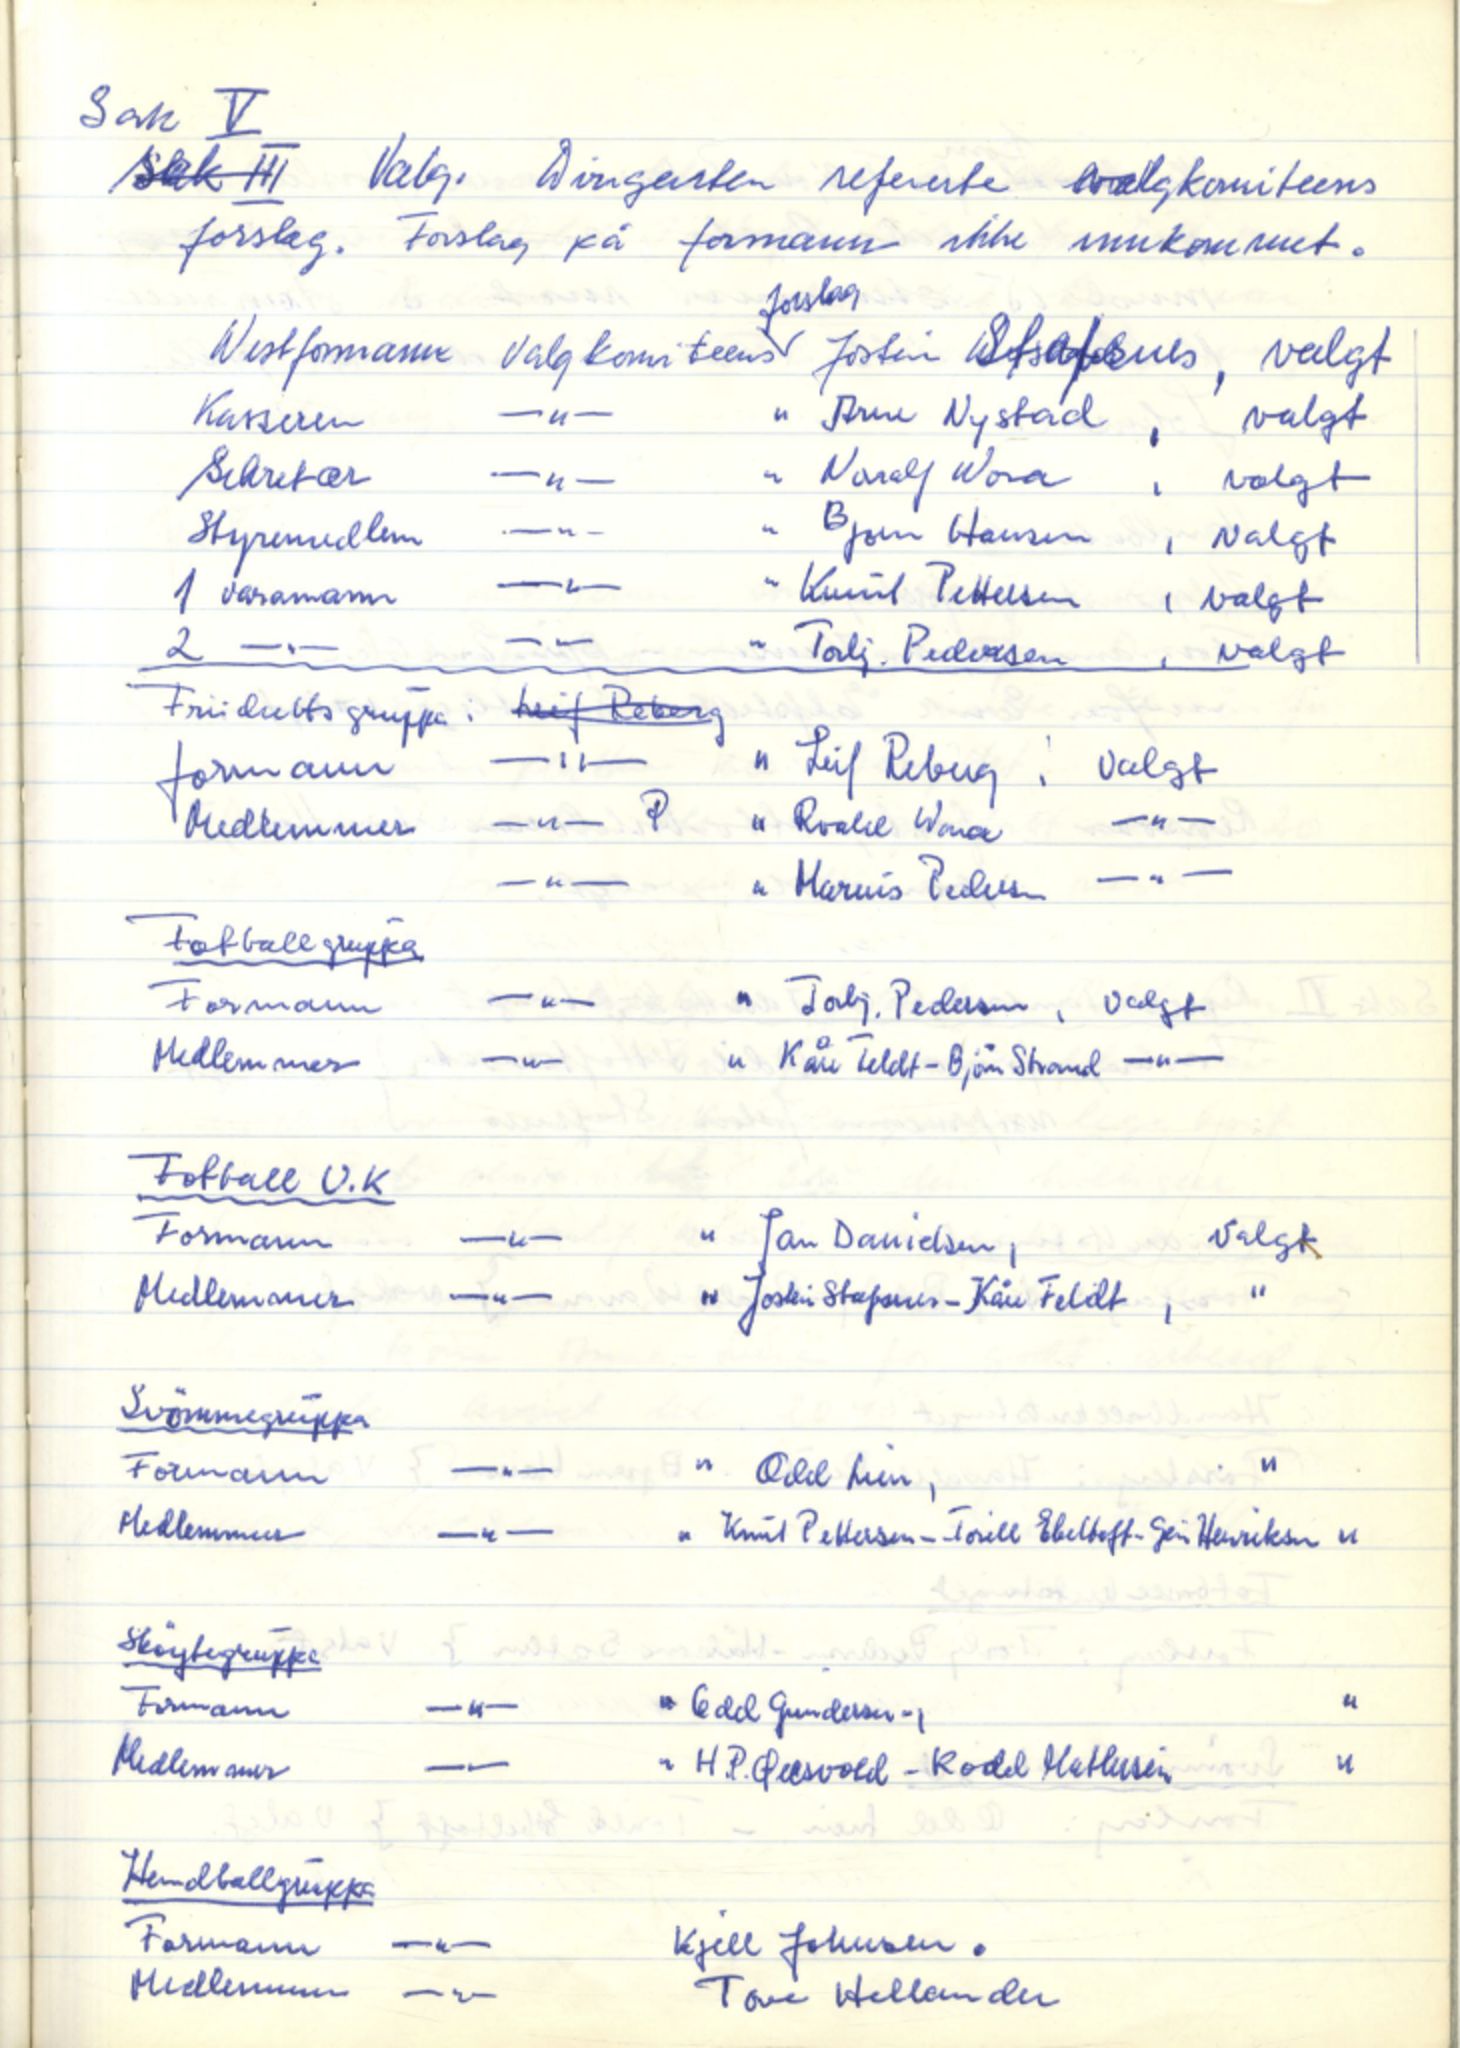 Sak V
Sak III Valg. Dirigenten refererte valgkomiteens
forslag. Forslag på formann ikke innkommet.
forslag
Westformann Valgkomiteens Jostein Stafsnes, valgt
Kasserer —"— " Arne Nystad, valgt
Sekretær —"— " Noralf Wora, valgt
Styremedlem —"— " Bjørn Hansen, valgt
1 varamann —"— " Knut Pettersen, valgt
2 —"— —"— " Torbj. Pedersen, valgt
Friidrettsgruppa: Leif Reberg
formann —"— " Leif Reberg, valgt
Medlemmer —"— " Roald Wora —"—
—"— " Marius Pedersen —"—
Fotballgruppa
Formann —"— " Torbj. Pedersen, valgt
Medlemmer —"— " Kåre Feldt - Bjørn Strand —"—
Fotball U.K
Formann —"— " Jan Danielsen, Valgt
Medlemmer —"— " Jostein Stafsnes - Kåre Feldt, "
Svömmegruppa
Formann —"— " Odd Lien, "
Medlemmer —"— " Knut Pettersen - Torill Ebeltoft - Geir Henriksen "
Sköytegruppa
Formann —"— " Odd Gundersen -, "
Medlemmer —"— " H.P. - Roald Mathisen "
Handballgruppa
Formann —"— Kjell Johnsen.
Medlemmer —"— Tove Hellander